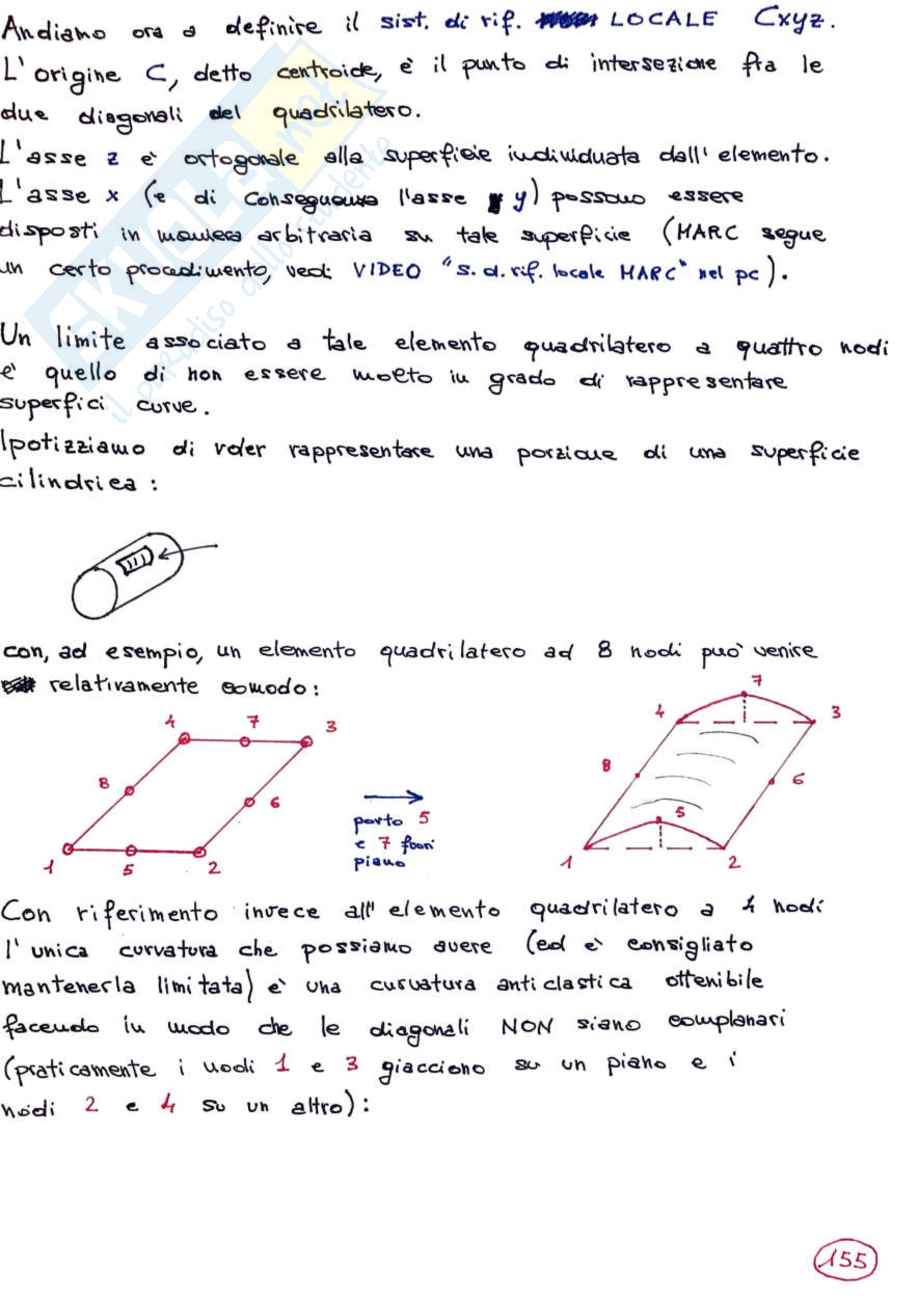 Andiamo ora a definire il sist. di rif. LOCALE Cxyz.
L'origine C, detto centroide, è il punto di intersezione fra le
due diagonali del quadrilatero.
L'asse z è ortogonale alla superficie individuata dall'elemento.
L'asse x (e di conseguenza l'asse y) possono essere
disposti in maniera arbitraria su tale superficie (MARC segue
un certo procedimento, vedi VIDEO "s.d.rif. locale MARC" nel pc).
Un limite associato a tale elemento quadrilatero a quattro nodi
è quello di non essere molto in grado di rappresentare
superfici curve.
Ipotizziamo di voler rappresentare una porzione di una superficie
cilindrica:
con, ad esempio, un elemento quadrilatero ad 8 nodi può venire
relativamente comodo:
4 7 3
8 6
1 5 2
porto 5
e 7 fuori
piano
7
4 3
8 6
5
1 2
Con riferimento invece all'elemento quadrilatero a 4 nodi
l'unica curvatura che possiamo avere (ed è consigliato
mantenerla limitata) è una curvatura anticlastica ottenibile
facendo in modo che le diagonali NON siano complanari
(praticamente i nodi 1 e 3 giacciono su un piano e i
nodi 2 e 4 su un altro):
155
SKUOLA.net
il paradiso dello studente